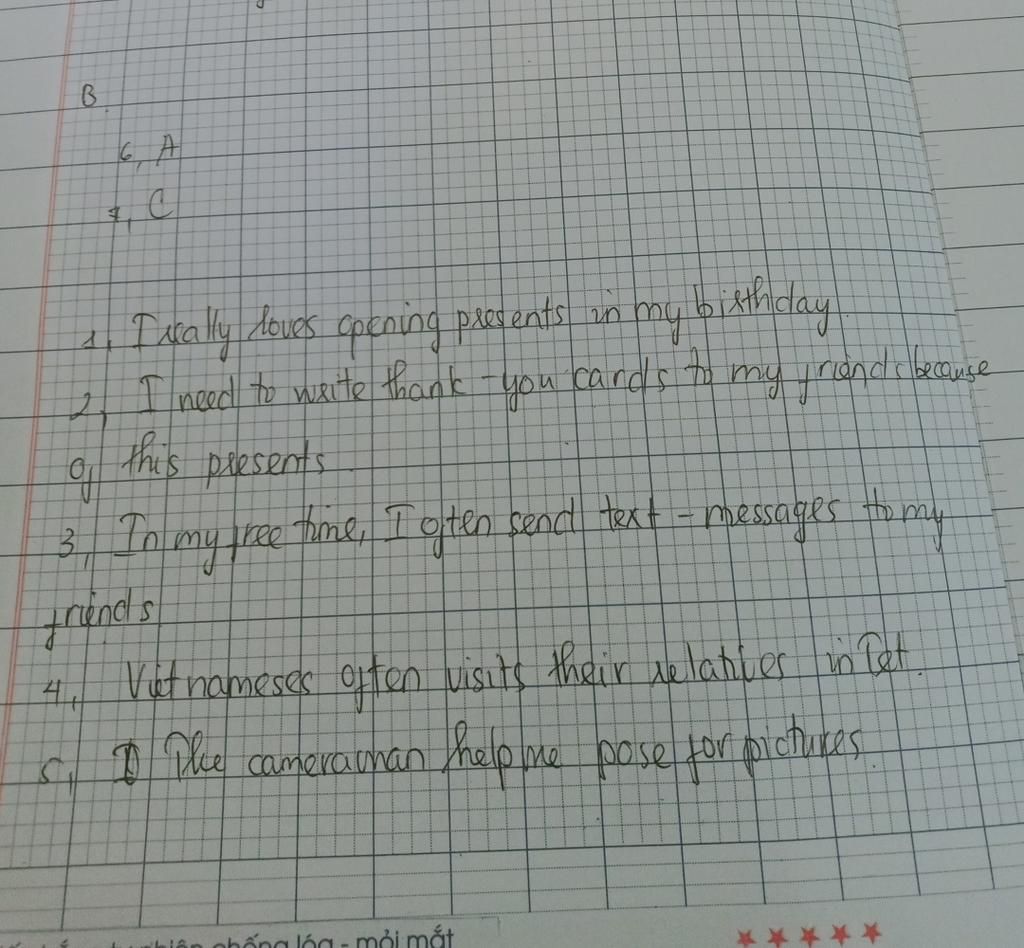 B.
6, A
7, C
1, I really loves opening presents in my birthday.
2, I need to write thank-you cards to my friends because
of this presents.
3, In my free time, I often send text-messages to my
friends
4, Vietnameses often visits their relatives in Tet.
5, The cameraman help me pose for pictures.
chống lóa - mỏi mắt